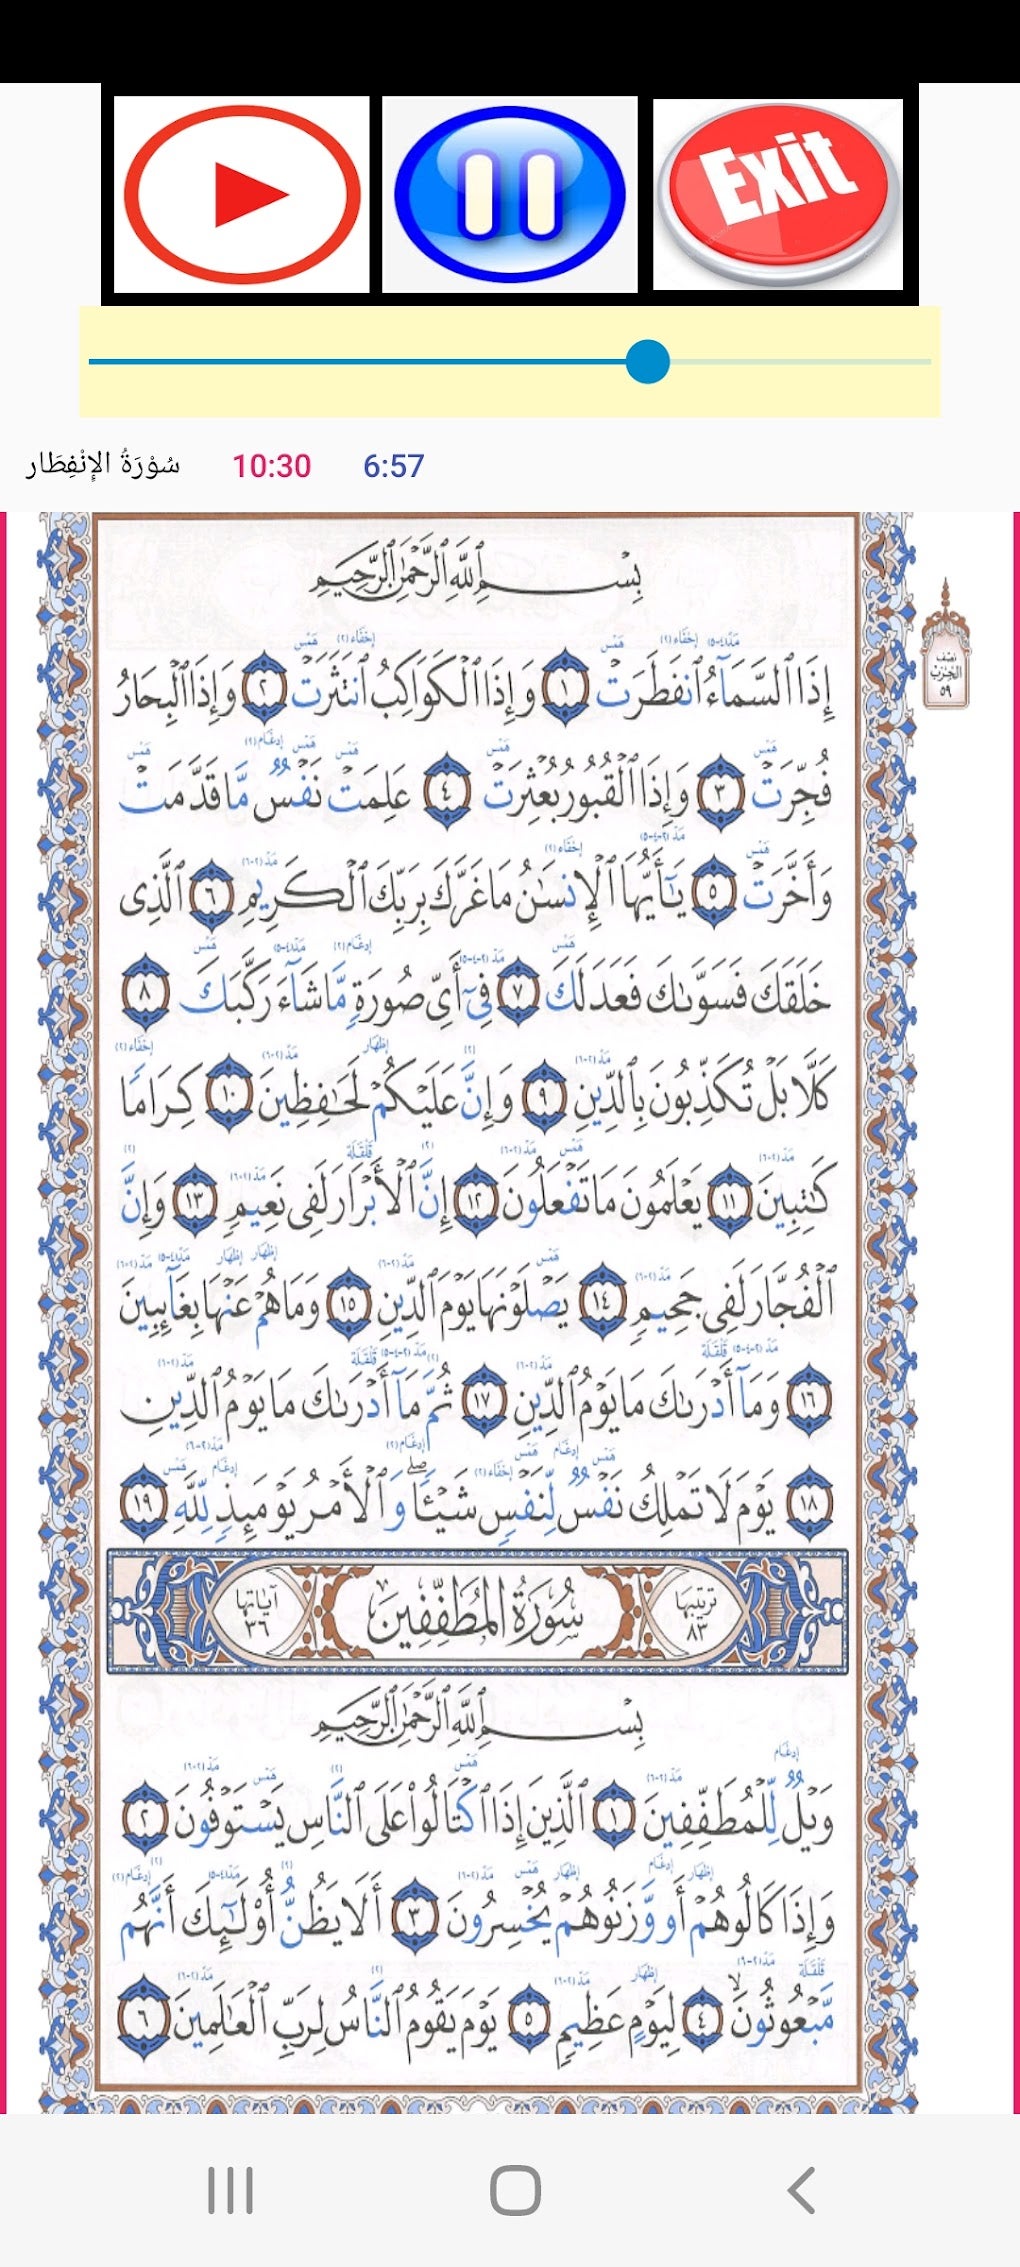 Exit
سُوْرَةُ الإِنْفِطَار 10:30 6:57
بِسْمِ ٱللَّهِ ٱلرَّحْمَٰنِ ٱلرَّحِيمِ
نصف
الحزب
٥٩
إِذَا ٱلسَّمَآءُ ٱنفَطَرَتْ ١ وَإِذَا ٱلْكَوَاكِبُ ٱنتَثَرَتْ ٢ وَإِذَا ٱلْبِحَارُ
فُجِّرَتْ ٣ وَإِذَا ٱلْقُبُورُ بُعْثِرَتْ ٤ عَلِمَتْ نَفْسٌ مَّا قَدَّمَتْ
وَأَخَّرَتْ ٥ يَٰٓأَيُّهَا ٱلْإِنسَٰنُ مَا غَرَّكَ بِرَبِّكَ ٱلْكَرِيمِ ٦ ٱلَّذِى
خَلَقَكَ فَسَوَّىٰكَ فَعَدَلَكَ ٧ فِىٓ أَىِّ صُورَةٍ مَّا شَآءَ رَكَّبَكَ ٨
كَلَّا بَلْ تُكَذِّبُونَ بِٱلدِّينِ ٩ وَإِنَّ عَلَيْكُمْ لَحَٰفِظِينَ ١٠ كِرَامًا
كَٰتِبِينَ ١١ يَعْلَمُونَ مَا تَفْعَلُونَ ١٢ إِنَّ ٱلْأَبْرَارَ لَفِى نَعِيمٍ ١٣ وَإِنَّ
ٱلْفُجَّارَ لَفِى جَحِيمٍ ١٤ يَصْلَوْنَهَا يَوْمَ ٱلدِّينِ ١٥ وَمَا هُمْ عَنْهَا بِغَآئِبِينَ
١٦ وَمَآ أَدْرَىٰكَ مَا يَوْمُ ٱلدِّينِ ١٧ ثُمَّ مَآ أَدْرَىٰكَ مَا يَوْمُ ٱلدِّينِ
١٨ يَوْمَ لَا تَمْلِكُ نَفْسٌ لِّنَفْسٍ شَيْـًٔا ۖ وَٱلْأَمْرُ يَوْمَئِذٍ لِّلَّهِ ١٩
ترتيبها ٨٣ سُورَةُ المُطَفِّفِينَ آياتها ٣٦
بِسْمِ ٱللَّهِ ٱلرَّحْمَٰنِ ٱلرَّحِيمِ
وَيْلٌ لِّلْمُطَفِّفِينَ ١ ٱلَّذِينَ إِذَا ٱكْتَالُوا۟ عَلَى ٱلنَّاسِ يَسْتَوْفُونَ ٢
وَإِذَا كَالُوهُمْ أَو وَّزَنُوهُمْ يُخْسِرُونَ ٣ أَلَا يَظُنُّ أُو۟لَٰٓئِكَ أَنَّهُم
مَّبْعُوثُونَ ۙ ٤ لِيَوْمٍ عَظِيمٍ ٥ يَوْمَ يَقُومُ ٱلنَّاسُ لِرَبِّ ٱلْعَٰلَمِينَ ٦